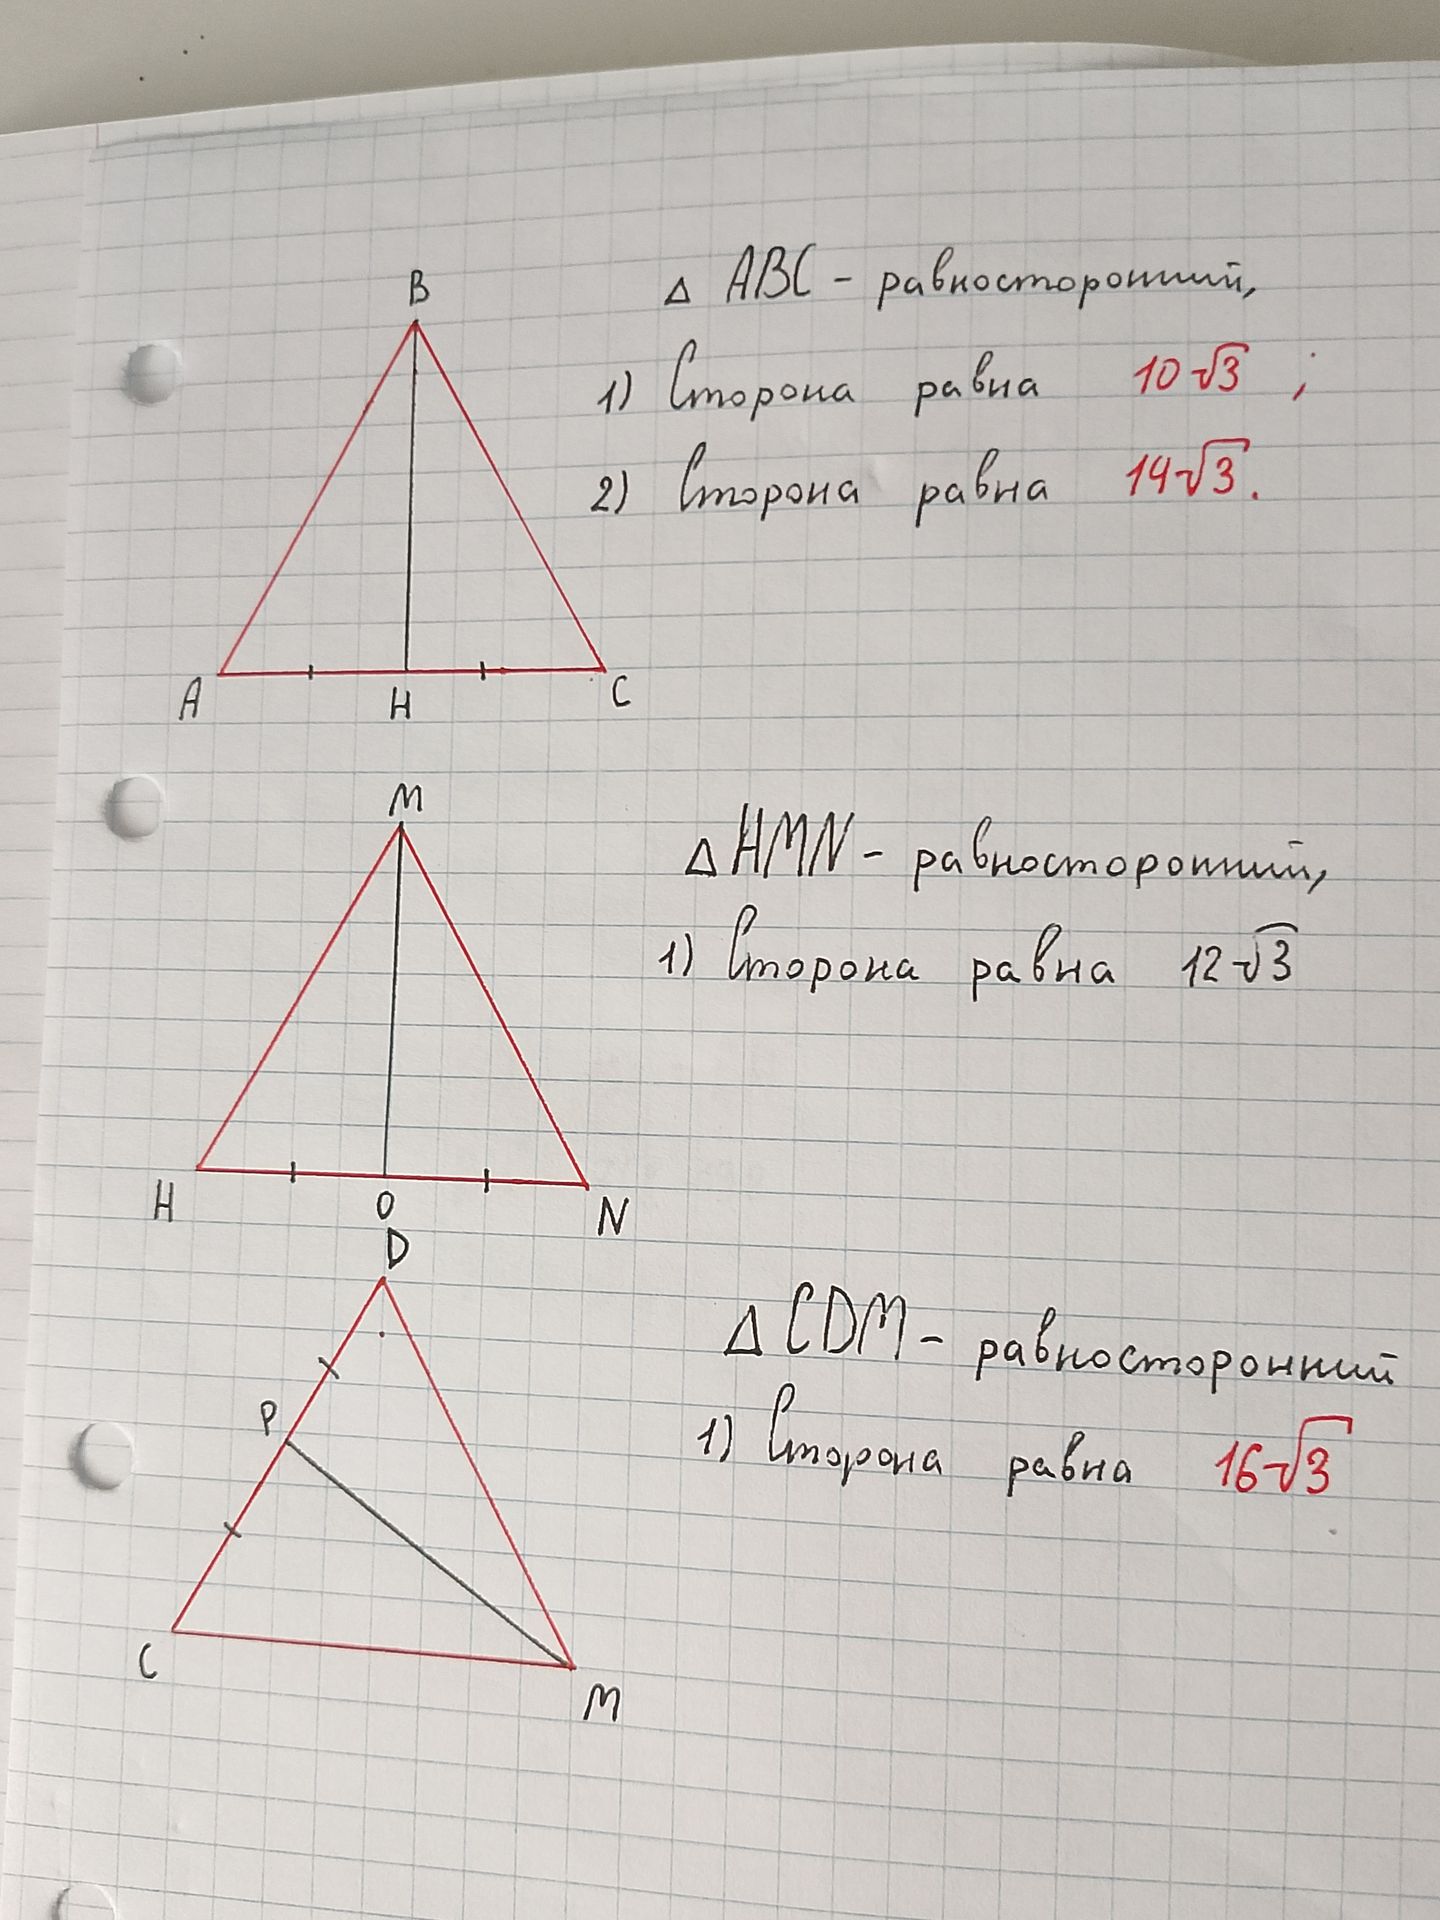 B
Δ ABC - равносторонний,
1) Сторона равна 10√3 ;
2) Сторона равна 14√3.
A H C
M
Δ HMN - равносторонний,
1) Сторона равна 12√3
H O N
D
Δ CDM - равносторонний
P
1) Сторона равна 16√3
C
M